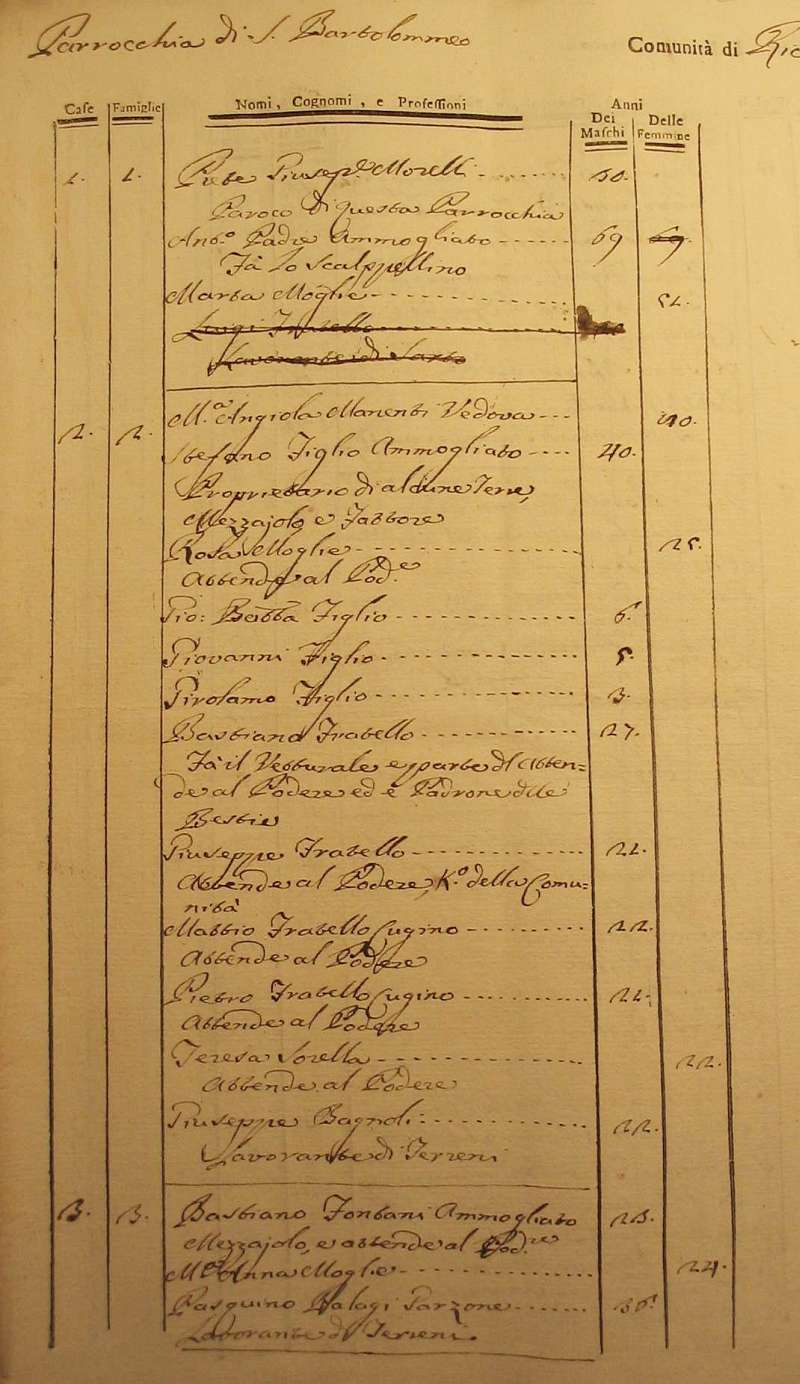 Parrocchia di S. Bartolommeo Comunità di
Case Famiglie Nomi, Cognomi, e Professioni Anni
Dei Maschi Delle Femmine
1. 1. Giuse.e Morelli
Paroco di questa Parrocchia
Ant.o Padre Ammogliato 69 69
Fà lo scalpellino
Marta Moglie
Luigi Fratello
Lavorante di Sarto
2. 2. M.a Angiola Vedova
Stefano Figlio Ammogliato 40.
Proprietario di alcune Terre,
Mezzajolo e Fattore
Rosa Moglie
Attende al Pod.e
Gio: Batta Figlio 6.
Giovanni Figlio
Girolamo Figlio 3.
Bastiano Fratello 27.
Fà il Vetturale e parte d'Atten=
de al Podere ed è Padrone delle
Bestie
Giuseppe Fratello
Attende al Podere, K.o della Comu=
nità
Mattio Fratello Cugino 22.
Attende al Podere
Pietro Fratello Cugino
Attende al Podere
Teresa Sorella 22.
Attende al Podere
Giuseppe Bagnoli 22.
Lavorante di Terreni
3. 3. Bastiano Fontani Ammogliato
Mezzajolo, e attende al Pod.re
M.a Anna Moglie 24.
Pasquino Garzone
Laborante di Terreni.